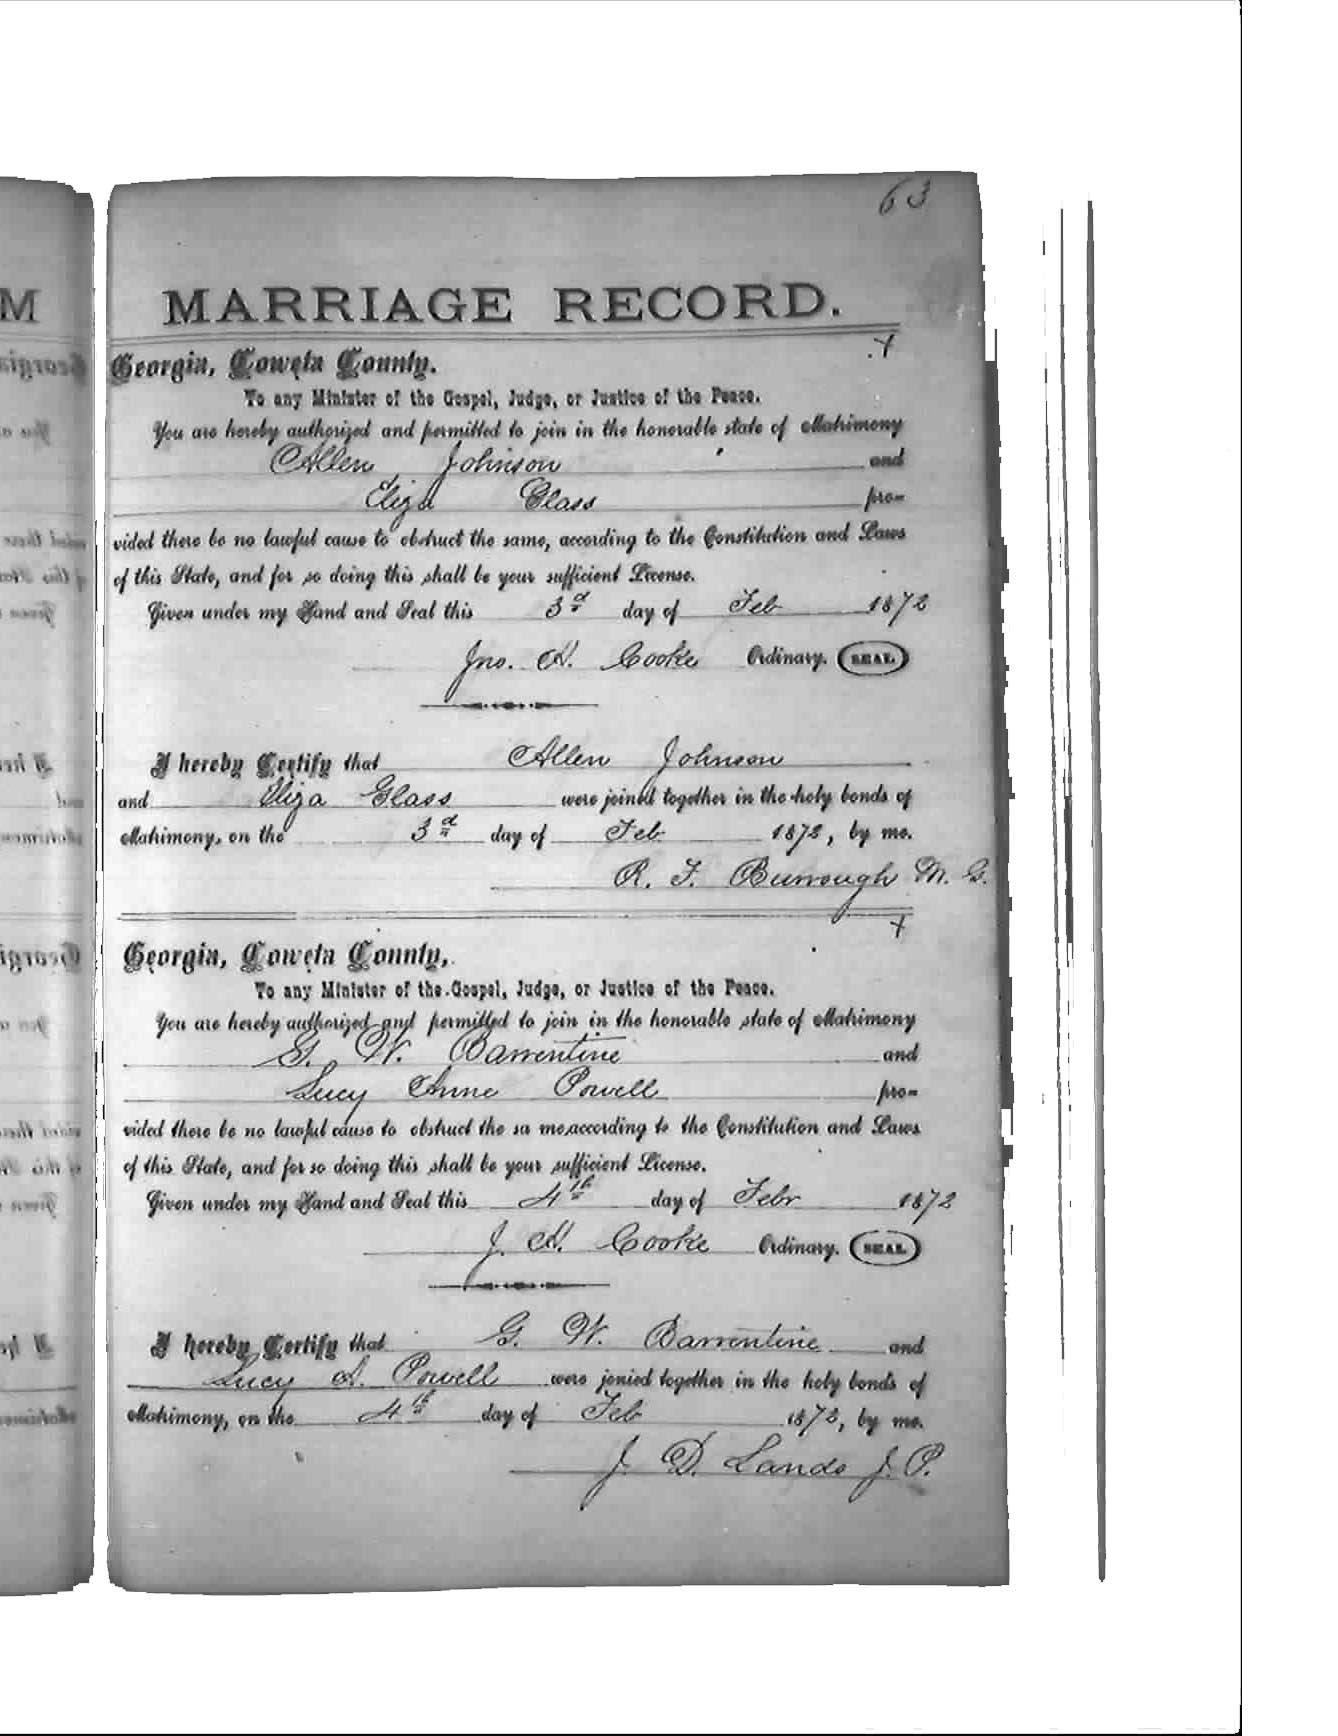 63
MARRIAGE RECORD.
+
Georgia, Coweta County.
To any Minister of the Gospel, Judge, or Justice of the Peace.
You are hereby authorized and permitted to join in the honorable state of Matrimony
Allen Johnson and
Eliza Glass pro-
vided there be no lawful cause to obstruct the same, according to the Constitution and Laws
of this State, and for so doing this shall be your sufficient License.
Given under my Hand and Seal this 3d day of Feb 1872
Jno. H. Cooke Ordinary. SEAL
I hereby Certify that Allen Johnson
and Eliza Glass were joined together in the holy bonds of
Matrimony, on the 3d day of Feb 1872, by me.
R. F. Burrough M. G.
+
Georgia, Coweta County,
To any Minister of the Gospel, Judge, or Justice of the Peace.
You are hereby authorized and permitted to join in the honorable state of Matrimony
G. W. Barrentine and
Lucy Anne Powell pro-
vided there be no lawful cause to obstruct the sa me,according to the Constitution and Laws
of this State, and for so doing this shall be your sufficient License.
Given under my Hand and Seal this 4th day of Febr 1872
J. H. Cooke Ordinary. SEAL
I hereby Certify that G. W. Barrentine and
Lucy A. Powell were jonied together in the holy bonds of
Matrimony, on the 4th day of Feb 1872, by me.
J. D. Lands J. P.